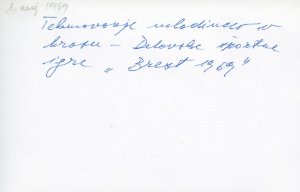 1. maj 1969
Tekmovanje mladincev v
krosu – Delavske športne
igre „Brest 1969"